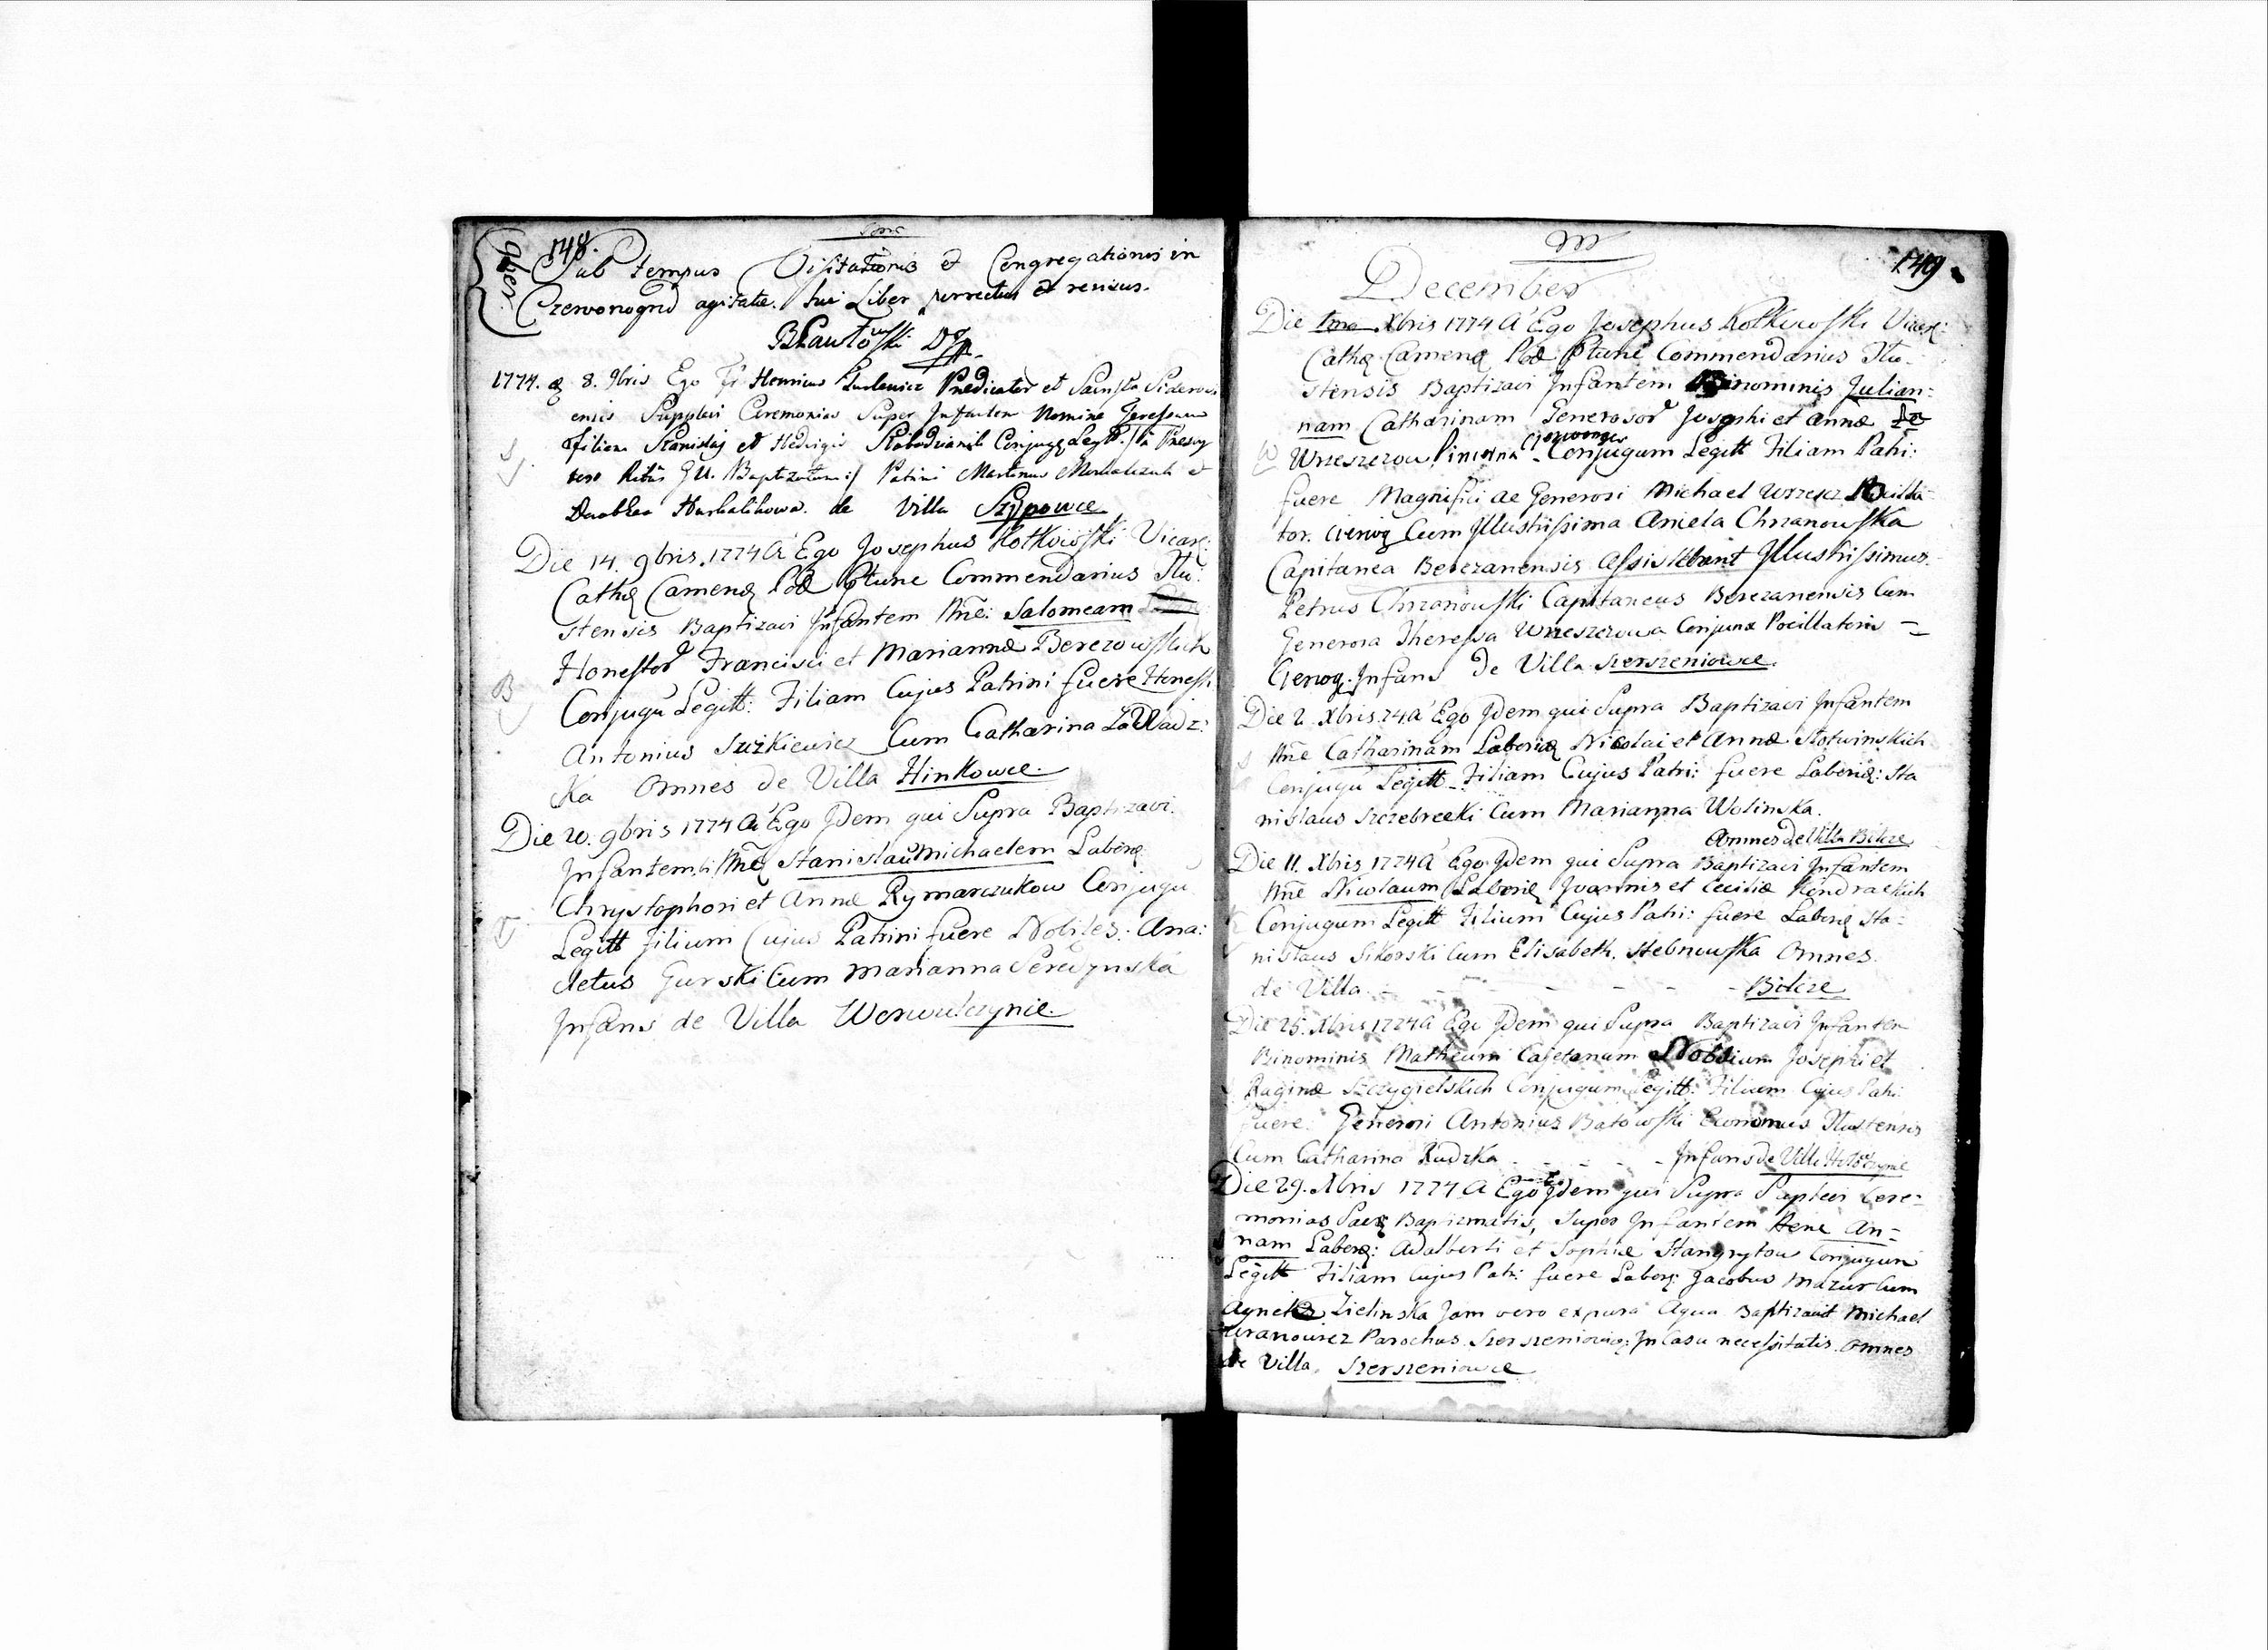 148.
9ber
Sub tempus Visitationis et Congregationis in
Czerwonogrd agitatæ. hic Liber correctus et revisus.
1774. 8. 9bris Ego Fr Henricus Prædicator et
ensis Supplevi Ceremonias Super Infantem Nomine Teressam
filiam Stanislaj et Hedvigis Conjugū Legitt. /:a Presby
tero Ritûs G U. Baptizatam:/ Patrini Martinus et
de Villa Szypowce
Die 14. 9bris. 1774 A Ego Josephus Kotkowski Vicarς:
Cathς Camenς Pod Ptunc Commendarius Tłu:
stensis Baptizavi Infantem Nne: Salomeam
Honestor Francisci et Mariannæ Berezowskich
Conjugū Legitt: Filiam Cujus Patrini fuere Honest:
Antonius Szizkiewicz Cum Catharina Zawadz:
ka Omnes de Villa Hinkowce.
Die 20. 9bris 1774 A Ego Idem qui Supra Baptizavi
Infantem Stanislaū Michaelem Laborς
Chrystophori et Annæ Rymarczukow Conjugū
Legitt filium Cujus Patrini fuere Nobiles: Ana:
cletus Gurski Cum Marianna
Infans de Villa Worwulczynie.
149
December
Die 1ma Xbris 1774 A Ego Josephus Kotkowski Vicarς:
Cathς Camenς Pod Ptunc Commendarius Tłu-
stensis Baptizavi Infantem Binominis Julian-
nam Catharinam Generosor Josephi et Annæ de
Conjugum Legitt Filiam Patri:
fuere Magnifici ac Generosi Michael Wrzeszcz Pocilla-
tor. Czerwog Cum Illustrissima Aniela Chrzanowska
Capitanea Berezanensis Assistebant Illustrissimus
Petrus Chrzanowski Capitaneus Berezanensis Cum
Generosa Theressa Wrzeszczowa Conjunx Pocillatoris
Czerwog. Infans de Villa Szerszeniowce.
Die 2. Xbris 74 A Ego Idem qui Supra Baptizavi Infantem
Nne Catharinam Laborię Nicolai et Annæ Słotwinskich
Conjugū Legitt Filiam Cujus Patri: fuere Laborię: Sta
nislaus Szczebrecki Cum Marianna Wolinska.
Omnes de Villa Bilcze
Die 11. Xbris 1774 A Ego Idem qui Supra Baptizavi Infantem
Nne Nicolaum Laborię Joannis et Ceciliæ Kondrackich
Conjugum Legitt Filium Cujus Patri: fuere Laborς Sta-
nislaus Sikorski Cum Elisabeth. Stebnowska Omnes
de Villa - - - - - - Bilcze
Die 25. Xbris 1774 A Ego Idem qui Supra Baptizavi Infantem
Binominis Matheum Cajetanum Nobilium Josephi et
Raginæ Szczygielskich Conjugum Legitt: Filium Cujus Patri:
fuere: Generosi Antonius Batowski Economus Tłustensis
Cum Catharina Rudzka - - - - - Infans de Villa
Die 29. Xbris 1774 A Ego Idem qui Supra Suplevi Cere-
monias Sacrς Baptismatis, Super Infantem Nne An-
nam Laborς: Adalberti et Sophiæ Stangrytow Conjugum
Legitt Filiam Cujus Patri: fuere Laborς: Jacobus Mazur Cum
Agneta Zielinska Jam vero ex pura Aqua Baptizavit Michael
Parochus Szerszeniowieς: In Casu necessitatis. Omnes
de Villa. Szerszeniowce